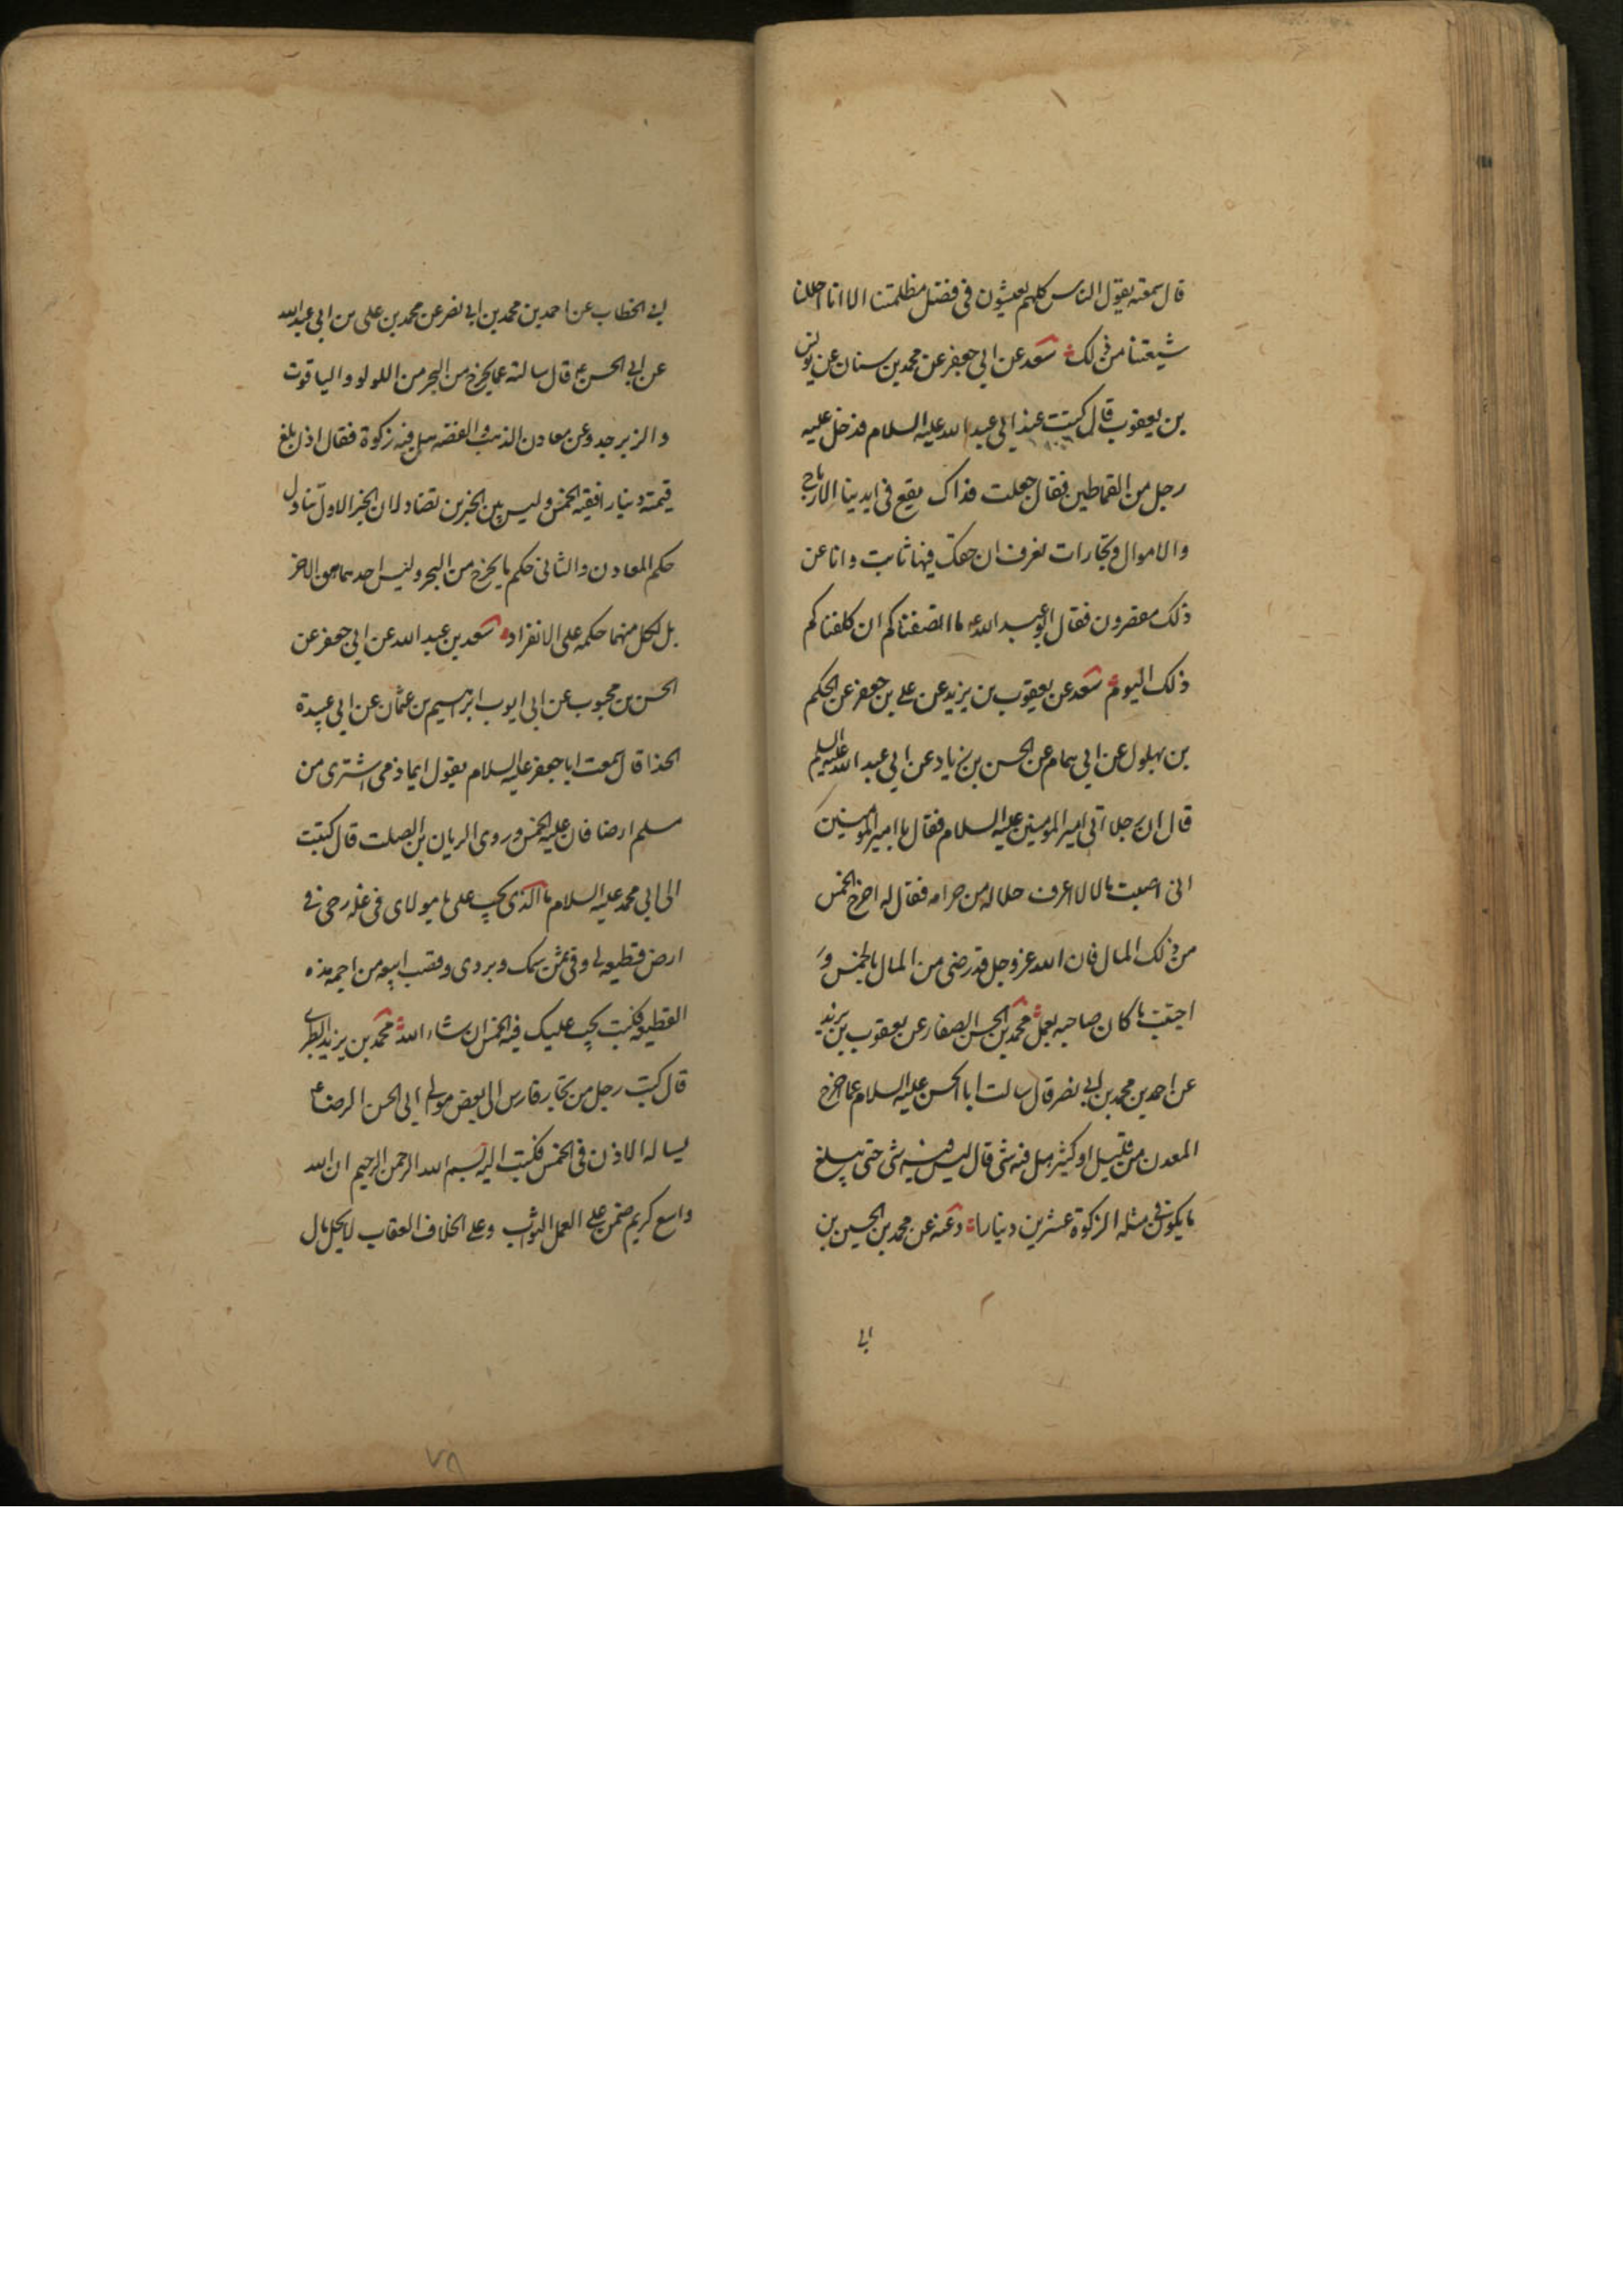 قال سمعته يقول الناس كلهم يعيشون في فضل مظلمتنا الا انا احللنا
شيعتنا من ذلك سعد عن ابي جعفر عن محمد بن سنان عن يونس
بن يعقوب قال كنت عند ابي عبد الله عليه السلام فدخل عليه
رجل من القماطين فقال جعلت فداك يقع في ايدينا الارباح
والاموال وتجارات نعرف ان حقك فيها ثابت وانا عن
ذلك مقصرون فقال ابو عبد الله ع ما انصفناكم ان كلفناكم
ذلك اليوم سعد عن يعقوب بن يزيد عن علي بن جعفر عن الحكم
بن بهلول عن ابي همام عن الحسن بن زياد عن ابي عبد الله عليه السلم
قال ان رجلا اتى امير المومنين عليه السلام فقال يا امير المومنين
اني اصبت مالا لا اعرف حلاله من حرامه فقال له اخرج الخمس
من ذلك المال فان الله عز وجل قد رضي من المال بالخمس و
اجتنب ما كان صاحبه يعمل محمد بن الحسن الصفار عن يعقوب بن يزيد
عن احمد بن محمد بن ابي نصر قال سالت ابا الحسن عليه السلام عما اخرج
المعدن من قليل او كثير هل فيه شي قال ليس فيه شي حتى يبلغ
ما يكون في مثله الزكوة عشرين دينارا وعنه عن محمد بن الحسين بن
ابي
ابي الخطاب عن احمد بن محمد بن ابي نصر عن محمد بن علي بن ابي عبد الله
عن ابي الحسن ع قال سالته عما يخرج من البحر من اللولو والياقوت
والزبرجد وعن معادن الذهب والفضه هل فيه زكوة فقال اذا بلغ
قيمته دينارا ففيه الخمس وليس بين الخبرين تضاد لان الخبر الاول تناول
حكم المعادن والثاني حكم ما يخرج من البحر وليس احدهما هو الاخر
بل لكل منهما حكمه على الانفراد سعد بن عبد الله عن ابي جعفر عن
الحسن بن محبوب عن ابي ايوب ابرهيم بن عثمان عن ابي عبيدة
الحذا قال سمعت ابا جعفر عليه السلام يقول ايما ذمي اشترى من
مسلم ارضا فان عليه الخمس وروى الريان بن الصلت قال كتبت
الى ابي محمد عليه السلام ما الذي يجب علي يا مولاي في غله رحى في
ارض قطيعه لي وفي ثمن سمك وبردي وقصب ابيعه من اجمه هذه
القطيعه فكتب يجب عليك فيه الخمس ان شاء الله محمد بن يزيد الطبري
قال كتب رجل من تجار فارس الى بعض موالي ابي الحسن الرضا ع
يساله الاذن في الخمس فكتب اليه بسم الله الرحمن الرحيم ان الله
واسع كريم ضمن على العمل الثواب وعلى الخلاف العقاب لا يحل مال